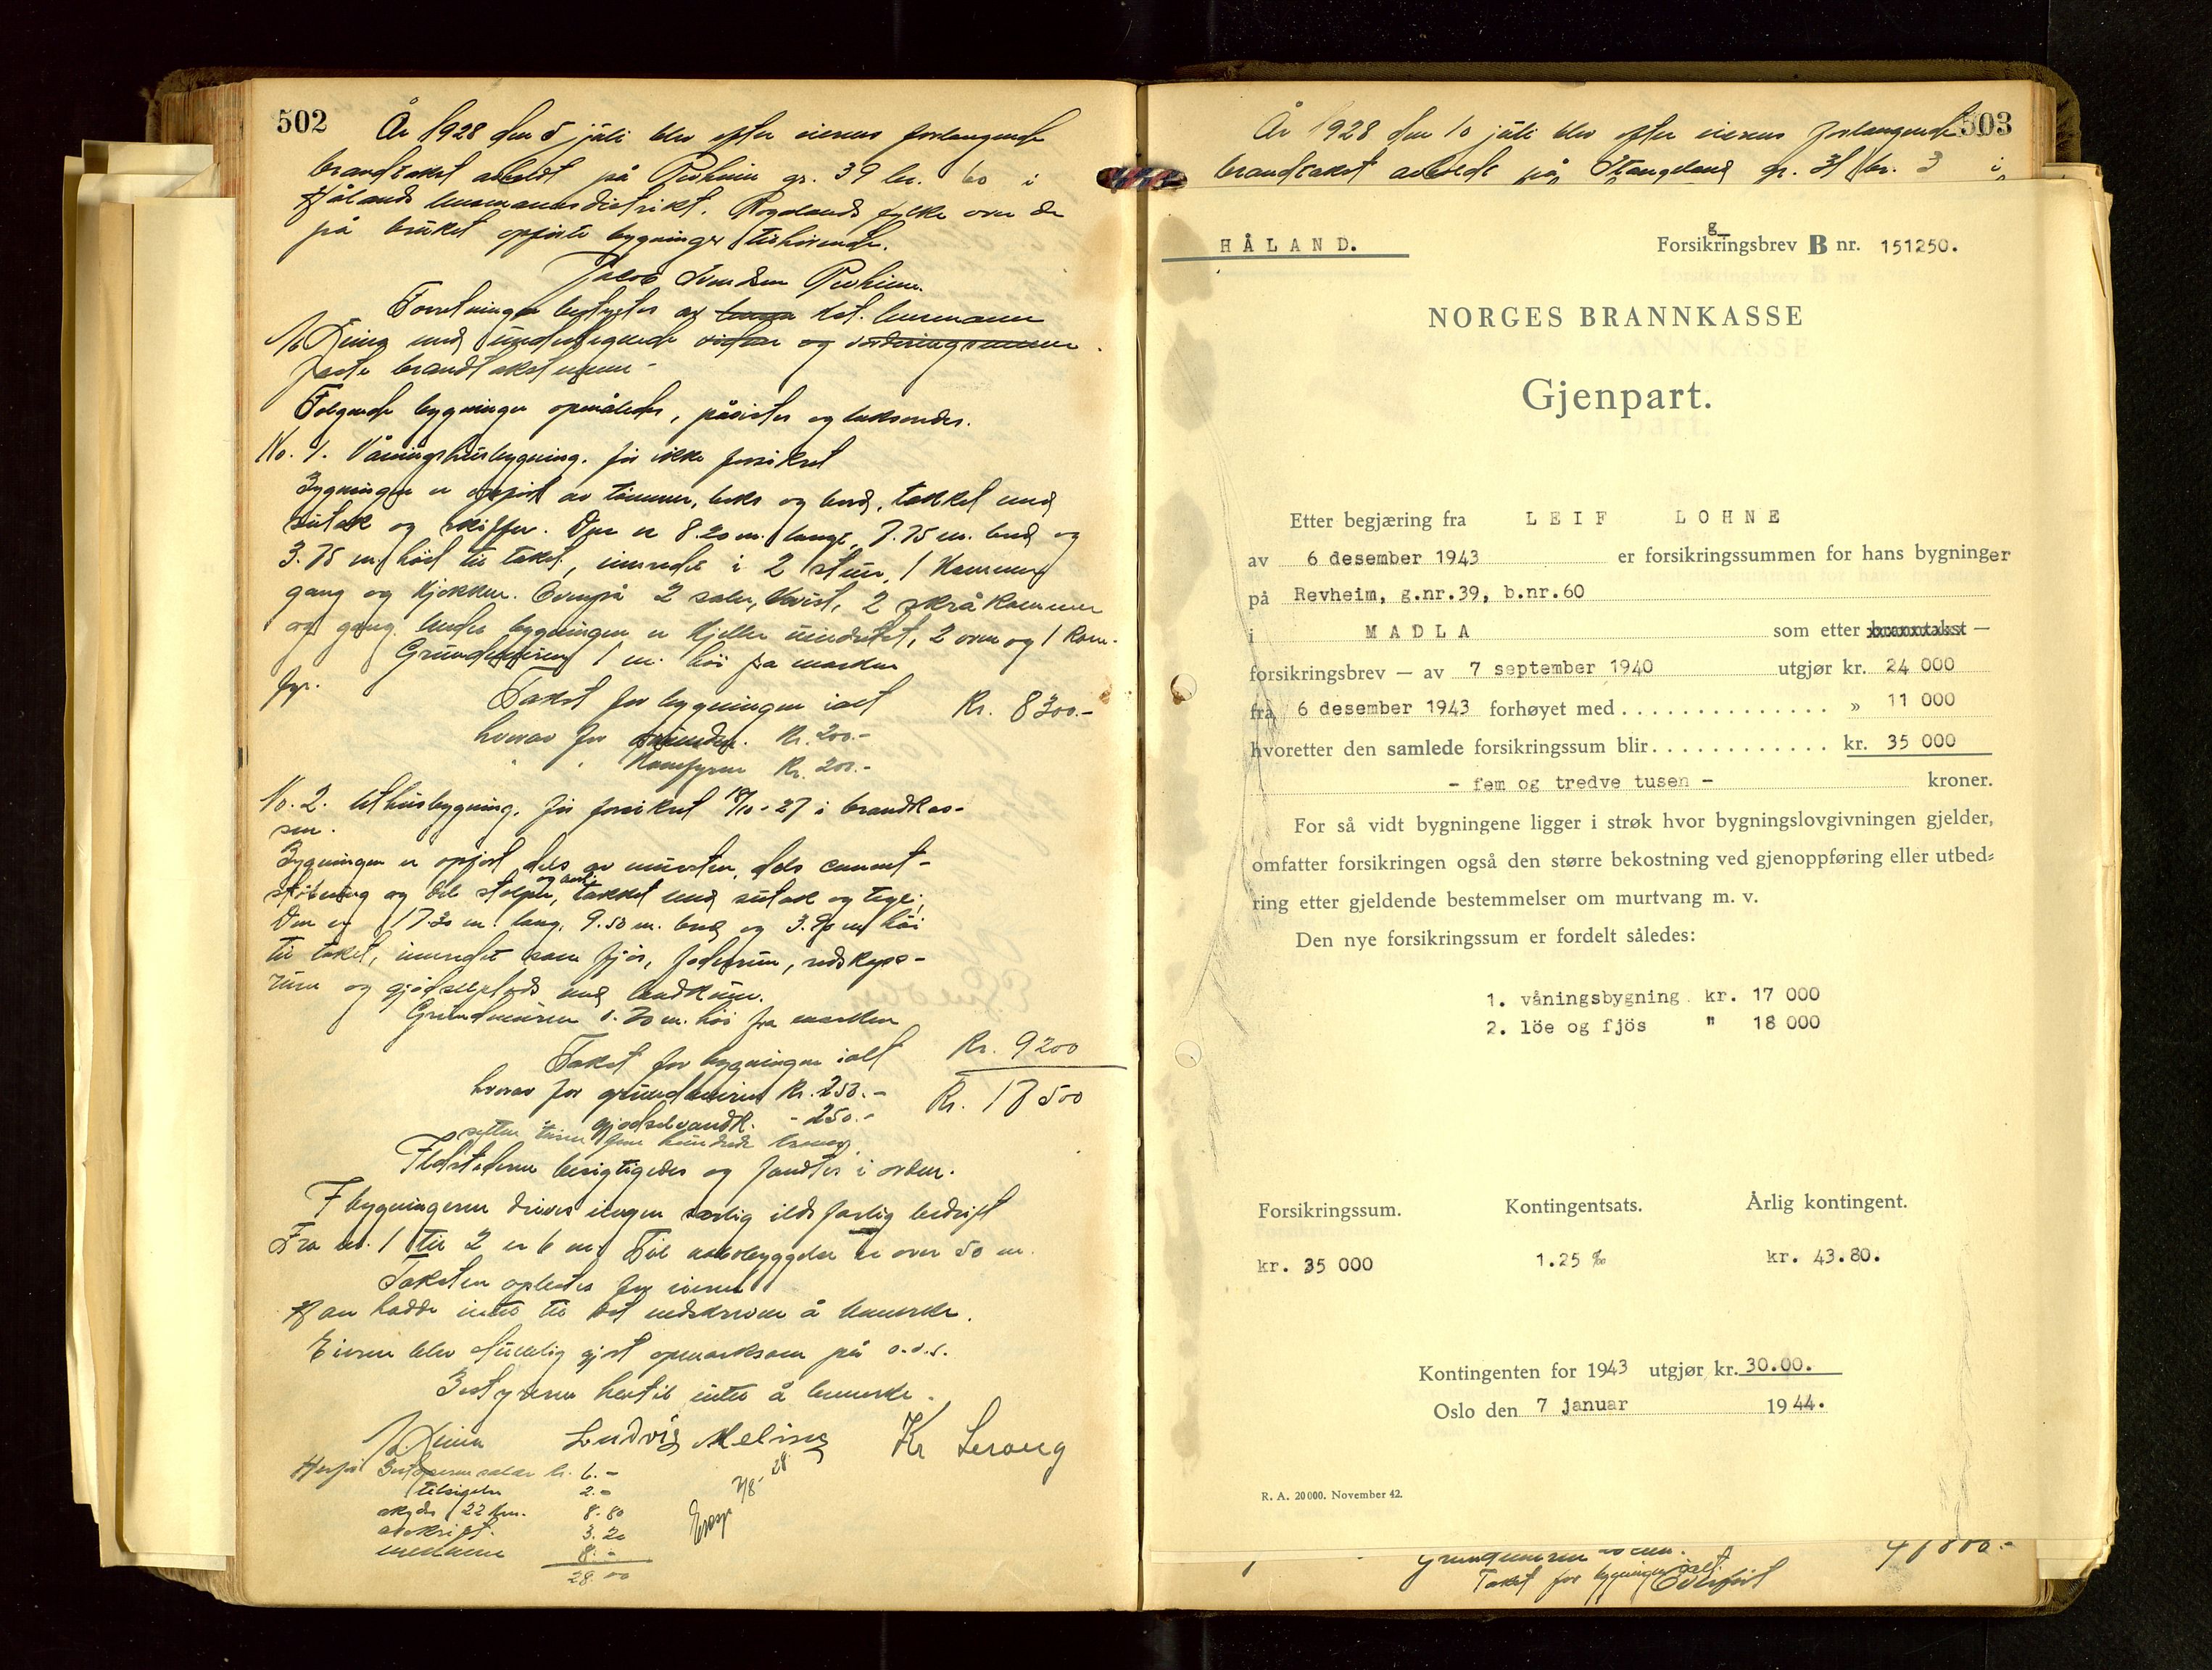 502
År 1928 den 5 juli blev efter eierens forlangende
brandtakst avholdt på Revheim gr. 39 br. 60 i
Hålands lensmannsdistrikt. Rogalands fylke over de
på bruket opførte bygninger tilhørende.
Jakob Svendsen Revheim.
Forretningen bestyrtes av kst. lensmann
med undertegnede vidner og vurderingsmenn
faste brandtakstmenn
Følgende bygninger opmåltes, påvistes og taksertes.
No. 1. Våningshusbygning. før ikke forsikret
Bygningen er opført av tømmer, beks og bord, tækket med
sutak og skiffer. Den er 8.20 m. lang, 7.75 m. bred og
3.75 m høi til taket, innredet i 2 stuer, 1 Kammer
gang og kjøkken. Ovenpå 2 saler, kvist, 2 skråkammer
og gang. Under bygningen er kjeller innredet, 2 ovner og 1 kom-
fyr.
Grundmuren 1 m. høi fra marken
Takst for bygningen ialt Kr. 8300.-
hvorav for grunden. Kr. 200.-
" " Komfyren Kr. 200.-
No. 2. Uthusbygning. før forsikret 18/10-27 i brandkas-
sen.
Bygningen er opført dels av mursten, dels cement-
støbning og del stolper, og bord tækket med sutak og tegl.
Den er 17.30 m. lang, 9.50 m. bred og 3.90 m høi
til taket, innredet som fjøs, foderrum, redskaps-
rum og gjødselplads med landkum.
Grundmuren 1.70 m. høi fra marken
Takst for bygningen ialt Kr. 9200
hvorav for grundmuren Kr. 250.- Kr. 17500
gjødselvandk. - 250.-
sytten tusen fem hundrede kroner.
Ildstederne besigtigedes og fandtes i orden.
I bygningerne drives ingen særlig ildsfarlig bedrift
Fra no. 1 til 2 er 6 m. Til nabobyggelse er over 50 m.
Taksten oplestes for eieren
Han hadde intet til det nedskrevne å bemerke.
Eieren blev skjellig gjort opmerksom på o.s.v.
Bestyreren hertil intet å bemerke.
Ludvig Meling Kr Leraug
Herfor Bestyrerens salær kr. 6.-
tilsigelse 2.-
skyds 22 km. 8.80
avskrift. 3.20
mennene 8.-
28.00
7/8-28
503
År 1928 den 10 juli blev efter eierens forlangende
brandtakst avholdt på Stangeland gr. 31 br. 3 i
HÅLAND.
g
Forsikringsbrev B nr. 151250.
NORGES BRANNKASSE
Gjenpart.
Etter begjæring fra LEIF LOHNE
av 6 desember 1943 er forsikringssummen for hans bygninger
på Revheim, g.nr.39, b.nr.60
i MADLA som etter branntakst —
forsikringsbrev — av 7 september 1940 utgjør kr. 24 000
fra 6 desember 1943 forhøyet med . . . . . . . . . . . . . . . » 11 000
hvoretter den samlede forsikringssum blir . . . . . . . . . . . . kr. 35 000
- fem og tredve tusen - kroner.
For så vidt bygningene ligger i strøk hvor bygningslovgivningen gjelder,
omfatter forsikringen også den større bekostning ved gjenoppføring eller utbed-
ring etter gjeldende bestemmelser om murtvang m. v.
Den nye forsikringssum er fordelt således:
1. våningsbygning kr. 17 000
2. löe og fjös " 18 000
Forsikringssum. Kontingentsats. Årlig kontingent.
kr. 35 000 1.25 ‰ kr. 43.80.
Kontingenten for 1943 utgjør kr. 30.00.
Oslo den 7 januar 1944.
R. A. 20000. November 42.
Takst for bygningen ialt
Overført